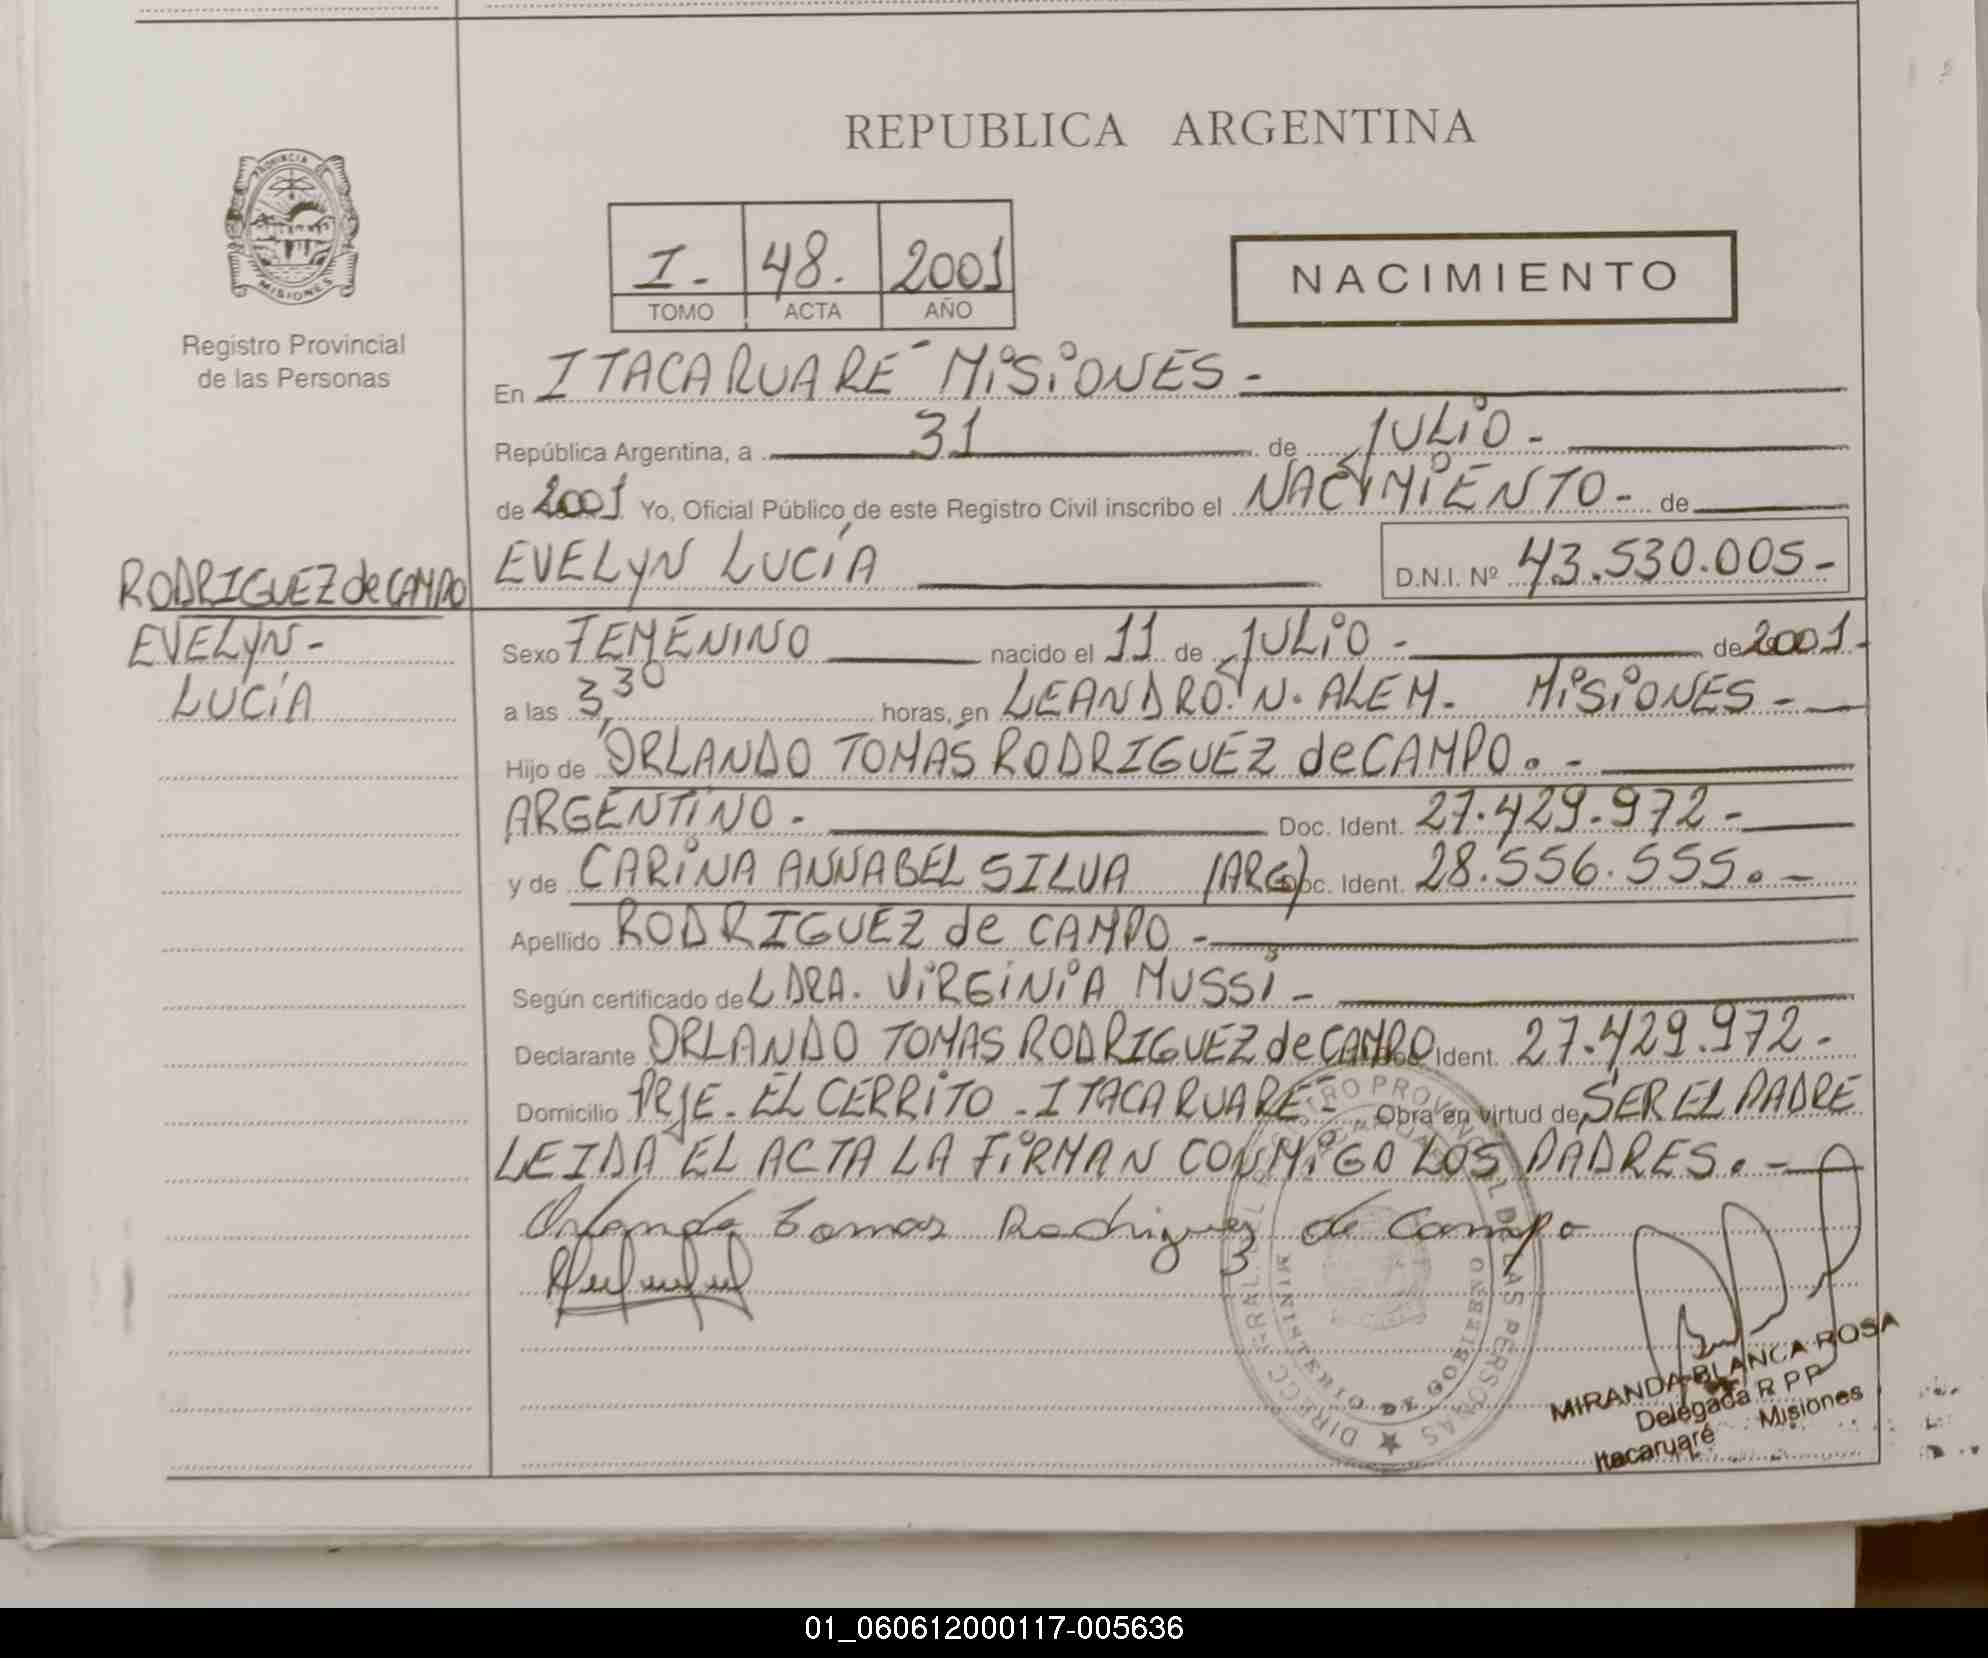 REPUBLICA ARGENTINA
PROVINCIA DE
MISIONES
Registro Provincial
de las Personas
I- 48. 2001
TOMO ACTA AÑO
NACIMIENTO
En ITACARUARÉ MISIONES-
República Argentina, a 31 de JULIO-
de 2001 Yo, Oficial Público de este Registro Civil inscribo el NACIMIENTO- de
EVELYN LUCÍA D.N.I. Nº 43.530.005-
RODRIGUEZ de CAMPO
EVELYN-
LUCÍA
Sexo FEMENINO nacido el 11 de JULIO- de 2001-
a las 3,30 horas, en LEANDRO. N. ALEM. MISIONES-
Hijo de ORLANDO TOMAS RODRIGUEZ de CAMPO.-
ARGENTINO- Doc. Ident. 27.429.972-
y de CARINA ANNABEL SILVA (ARG) Doc. Ident. 28.556.555.-
Apellido RODRIGUEZ de CAMPO-
Según certificado de LDRA. VIRGINIA MUSSI-
Declarante ORLANDO TOMAS RODRIGUEZ de CAMPO Ident. 27.429.972-
Domicilio PRJE. EL CERRITO - ITACARUARÉ- Obra en virtud de SER EL PADRE
LEIDA EL ACTA LA FIRMAN CONMIGO LOS PADRES.-
Orlando Tomas Rodriguez de Campo
PROVINCIAL DE LAS PERSONAS
MINISTERIO DE GOBIERNO
MIRANDA BLANCA ROSA
Delegada R P P
Itacaruaré Misiones
01_060612000117-005636